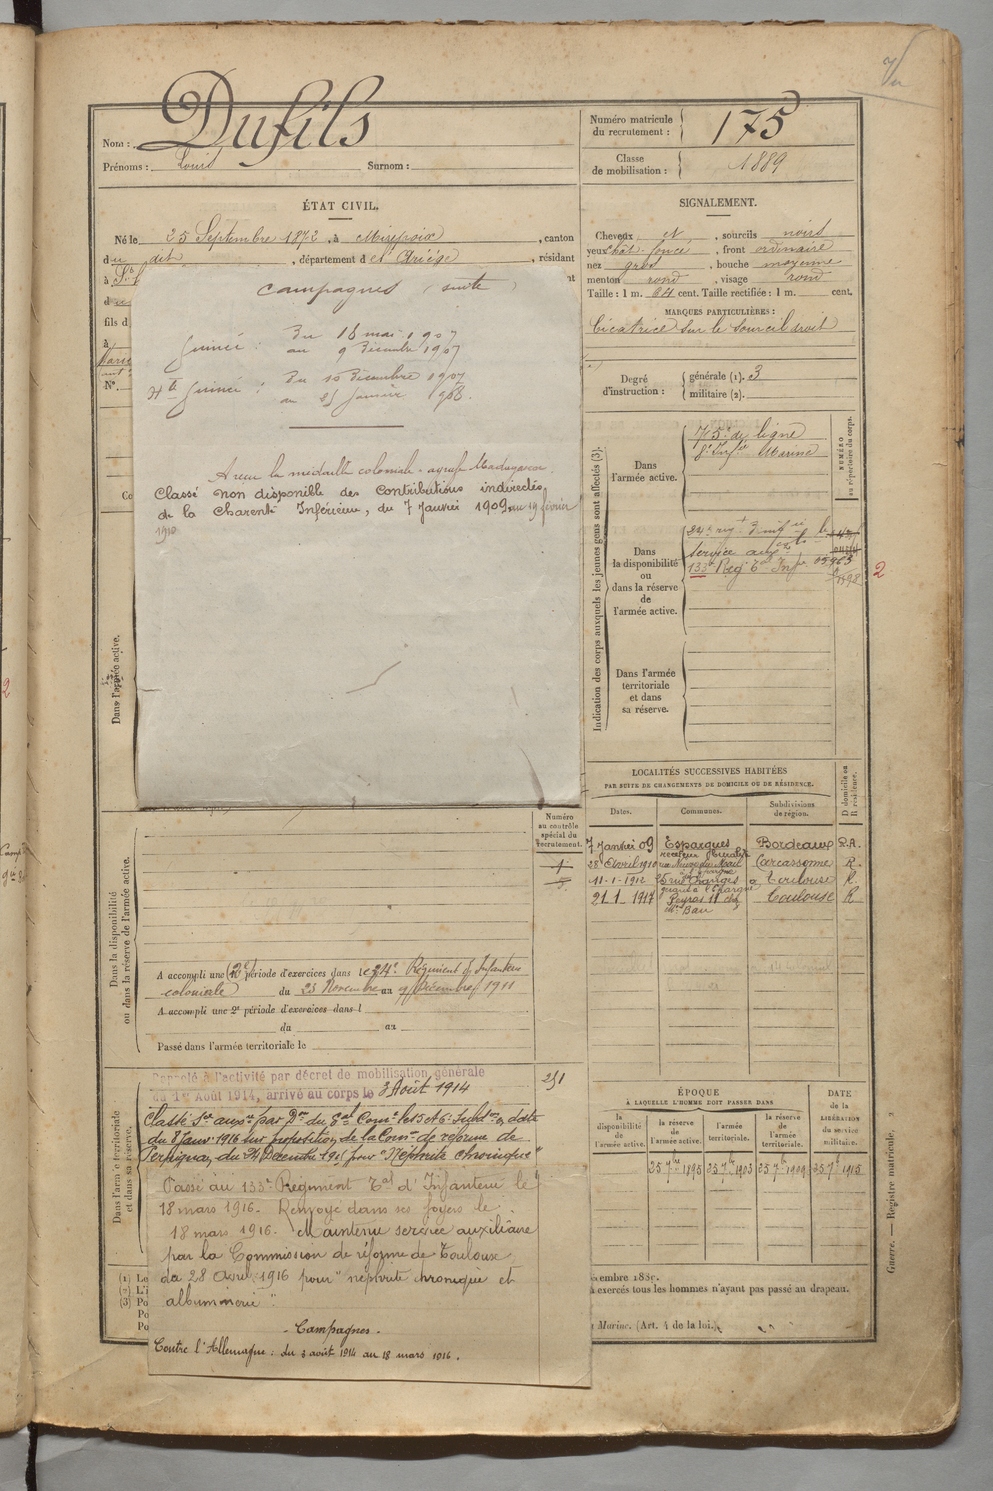 Nom : Dufils
Prénoms : Louis Surnom :
Numéro matricule
du recrutement : 175
Classe
de mobilisation : 1889
ÉTAT CIVIL.
Né le 25 Septembre 1872, à Mirepoix, canton
du dit, département de l'Ariège, résidant
à
fils d
à
N°.
SIGNALEMENT.
Cheveux et, sourcils noirs
yeux chât. foncé, front ordinaire
nez gros, bouche moyenne
menton rond, visage rond
Taille : 1 m. 64 cent. Taille rectifiée : 1 m. cent.
MARQUES PARTICULIÈRES :
Cicatrice sur le sourcil droit
Degré
d'instruction :
générale (1). 3
militaire (2).
Campagnes (suite)
Guinée : du 18 mai 1907
au 9 Décembre 1907
Hte Guinée : du 10 Décembre 1907
au 25 Janvier 1908.
A reçu la médaille coloniale - agrafe Madagascar.
Classé non disponible des Contributions indirectes
de la Charente Inférieure, du 7 Janvier 1909 au 19 février
1910
Indication des corps auxquels les jeunes gens sont affectés (3).
NUMÉRO
au répertoire du corps.
Dans
l'armée active.
de ligne
8e Infie Marine
Dans
la disponibilité
ou
dans la réserve
de
l'armée active.
service aux
133e Reg Tal Infie
2
Dans l'armée
territoriale
et dans
sa réserve.
Dans l'armée active.
LOCALITÉS SUCCESSIVES HABITÉES
PAR SUITE DE CHANGEMENTS DE DOMICILE OU DE RÉSIDENCE.
Dates. Communes. Subdivisions
de région. D domicile ou
R résidence.
7 Janvier 09 Esparques Bordeaux
28 Avril 1910 Carcassonne R.
11-1-1912 Toulouse R.
21-1-1917 Peyras 11 Toulouse R
Numéro
au contrôle
spécial du
recrutement.
Dans la disponibilité
ou dans la réserve de l'armée active.
A accompli une (2e) période d'exercices dans le 24e Régiment d'Infanterie
coloniale du 23 Novembre au 9 Décembre 1911
A accompli une 2e période d'exercices dans l
du au
Passé dans l'armée territoriale le
Dans l'armée territoriale
et dans sa réserve.
Rappelé à l'activité par décret de mobilisation générale
du 1er Août 1914, arrivé au corps le 3 Août 1914
251
du 8 Janv. 1916 sur proposition de la Comon de réforme de
Perpignan, du 24 Décembre pour "Néphrite chronique"
Passé au 133e Régiment Tal d'Infanterie le
18 mars 1916. Renvoyé dans ses foyers le
18 mars 1916. Maintenu service auxiliaire
par la Commission de réforme de Toulouse
du 28 Avril 1916 pour "néphrite chronique et
albuminerie".
- Campagnes -
Contre l'Allemagne : du 3 août 1914 au 18 mars 1916.
ÉPOQUE
À LAQUELLE L'HOMME DOIT PASSER DANS
la
disponibilité
de
l'armée active.
la réserve
de
l'armée active.
l'armée
territoriale.
la réserve
de
l'armée
territoriale.
DATE
de la
LIBÉRATION
du service
militaire.
25 7bre 1895 25 7bre 1903 25 7bre 1909 25 7bre 1915
Guerre. — Registre matricule. 2
(1) Le
(2) L'i
(3) Po
Po
Po
à exercés tous les hommes n'ayant pas passé au drapeau.
Marine. (Art. 4 de la loi.)